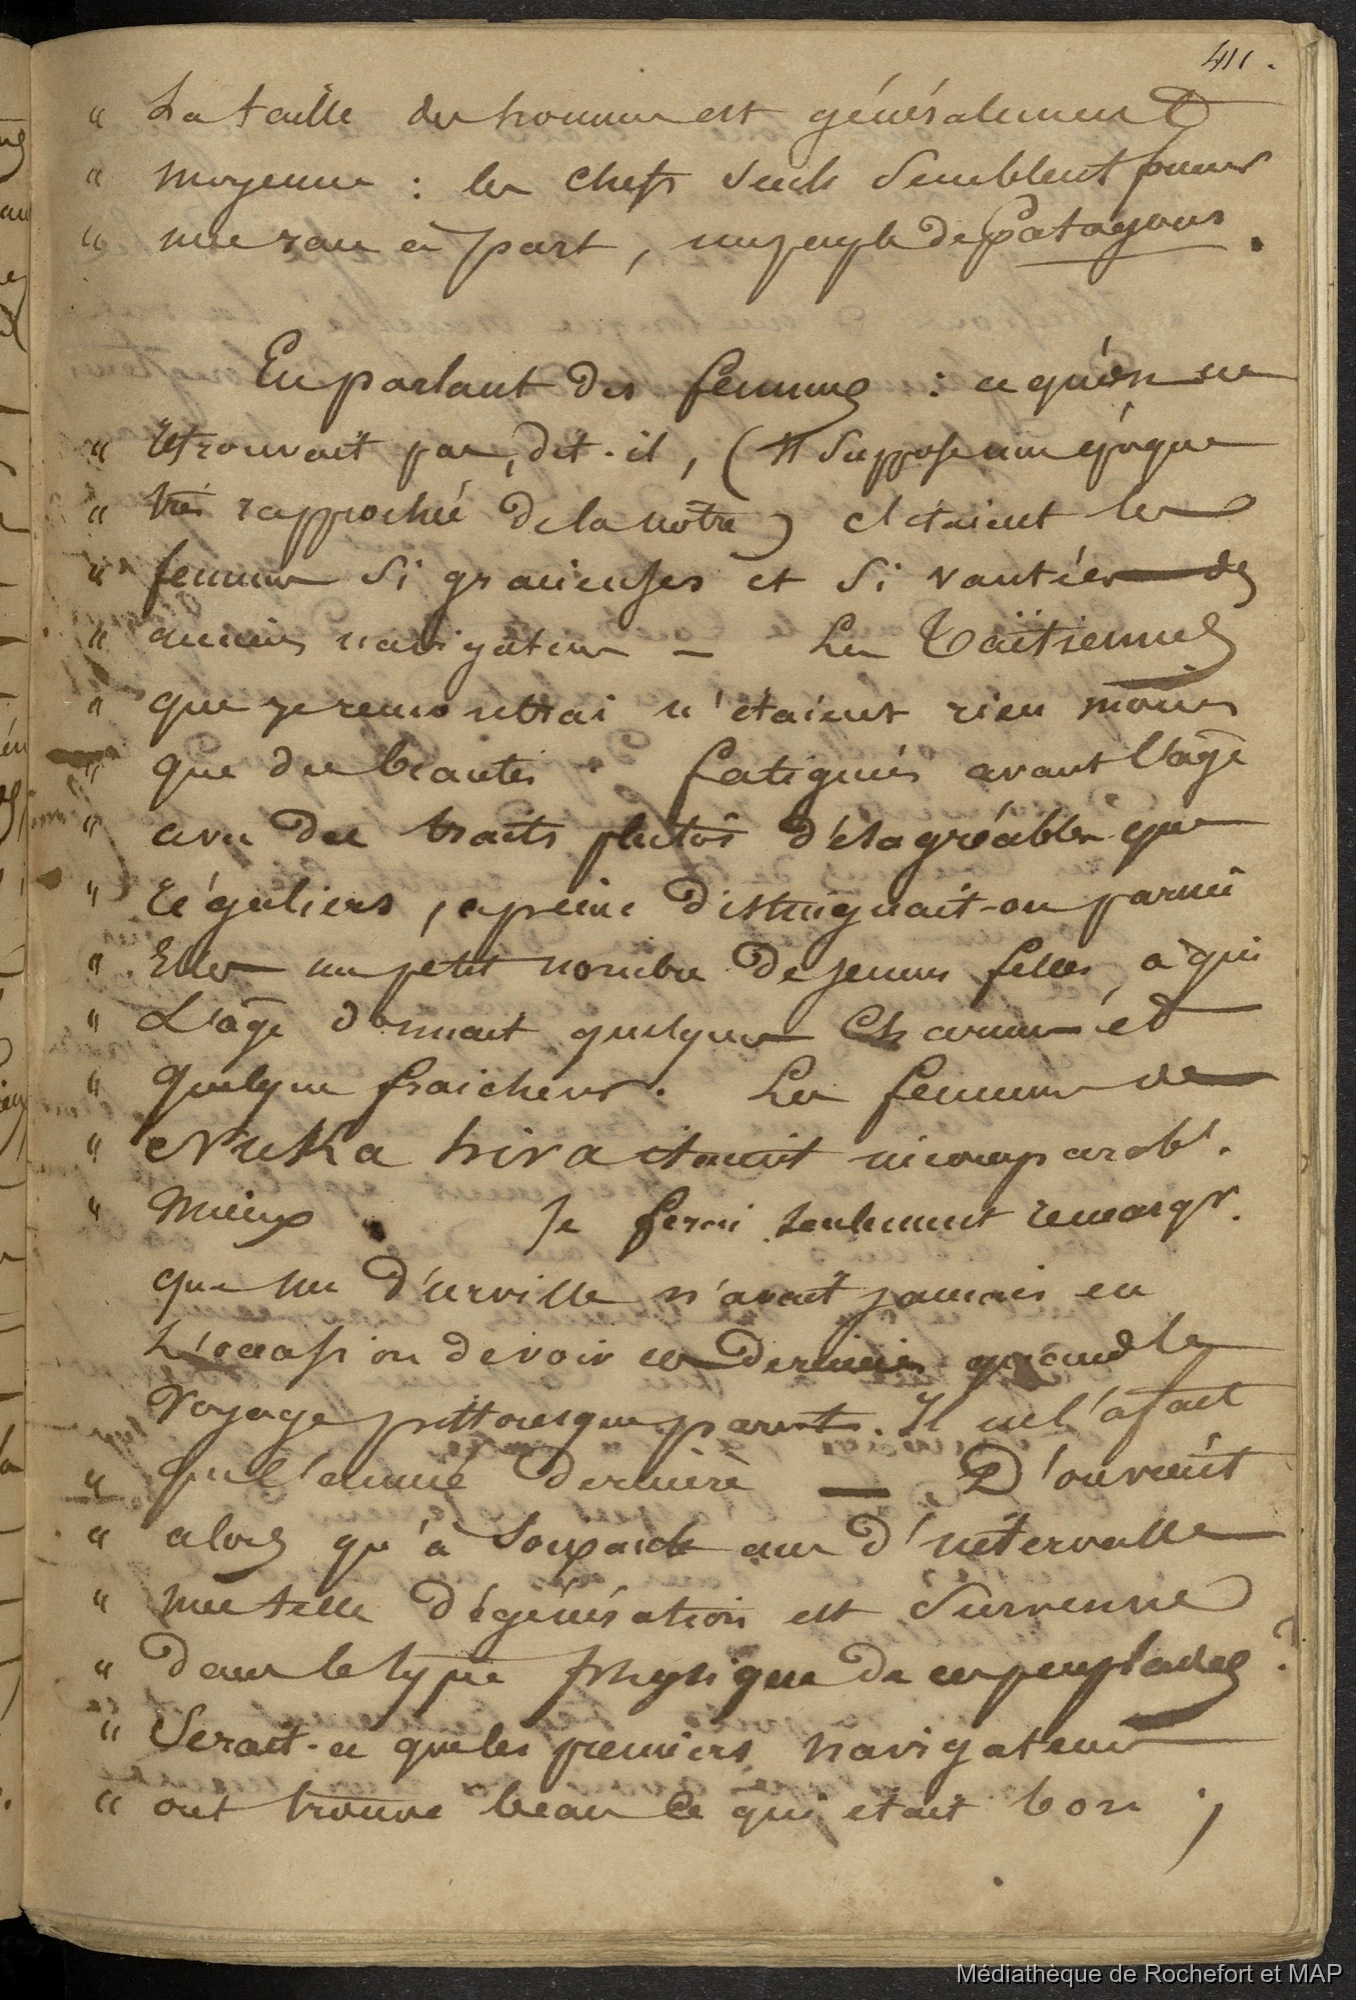 411.
" La taille des hommes est généralement
" moyenne : les chefs seuls semblent former
" une race à part, un peuple de Patagons.
En parlant des femmes : ce qu'on ne
" retrouvait pas, dit-il, (Il suppose une époque
" très rapprochée de la nôtre) c'étaient les
" femmes si gracieuses et si vantées des
" anciens navigateurs — Les Taïtiennes
" que je rencontrai n'étaient rien moins
" que des beautés . fatiguées avant l'âge
" avec des traits plutôt désagréables que
" réguliers, a peine distinguait-on parmi
" Elles un petit nombre de jeunes filles, à qui
" L'âge donnait quelques charmes et
" quelque fraicheur. Les femmes de
" Nuka hiva étaient incomparabt.
" mieux . Je ferai seulement remarqr.
que mr D'urville n'avait jamais eu
L'occasion de voir ces dernières quand le
Voyage pittoresque parut. Il ne l'a fait
" que l'année dernière — D'où vient
" alors qu'à Soixante ans d'intervalle
" une telle dégénération est survenue
" dans le type physique de ces peuplades ?
" Serait-ce que les premiers navigateurs
" ont trouvé beau ce qui etait bon ;
Médiathèque de Rochefort et MAP